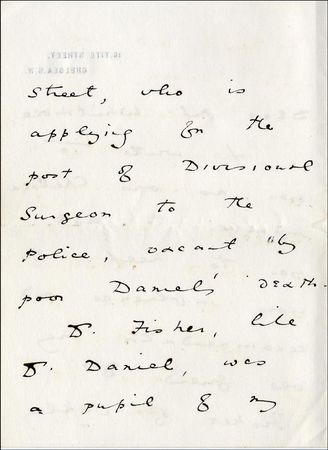 16, TITE STREET,
CHELSEA. S.W.
Street, who is
applying for the
post of Divisional
Surgeon to the
Police, vacant by
poor Daniel's death.
Dr. Fisher, like
Dr. Daniel, was
a pupil of my